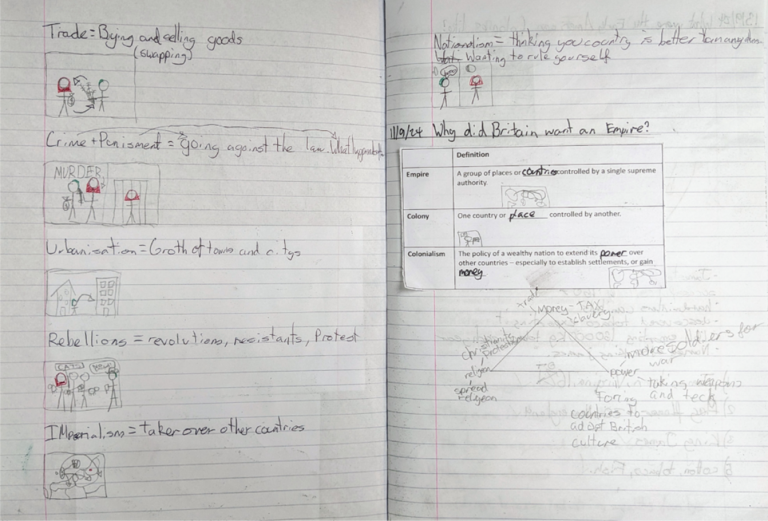 Trade = Bying and selling goods
(swapping)
Crime + Punisment = going against the law.
MURDER
Urbanisation = Groth of towns and citys
Rebellions = revolutions, resistants, Protest
IMperialism = taker over other countries
Nationalism = thinking you country is better than any
Wanting to rule yourself
11/9/24 Why did Britain want an Empire?
Definition
Empire
A group of places or countries controlled by a single supreme
authority.
Colony
One country or place controlled by another.
Colonialism
The policy of a wealthy nation to extend its power over
other countries – especially to establish settlements, or gain
money.
trade
Money - TAX
slavery
Christianity
Protestant
religon
spread
religeon
power
more soldiers for
war
taking weapons
and tech
Forcing
countries to
adopt British
culture